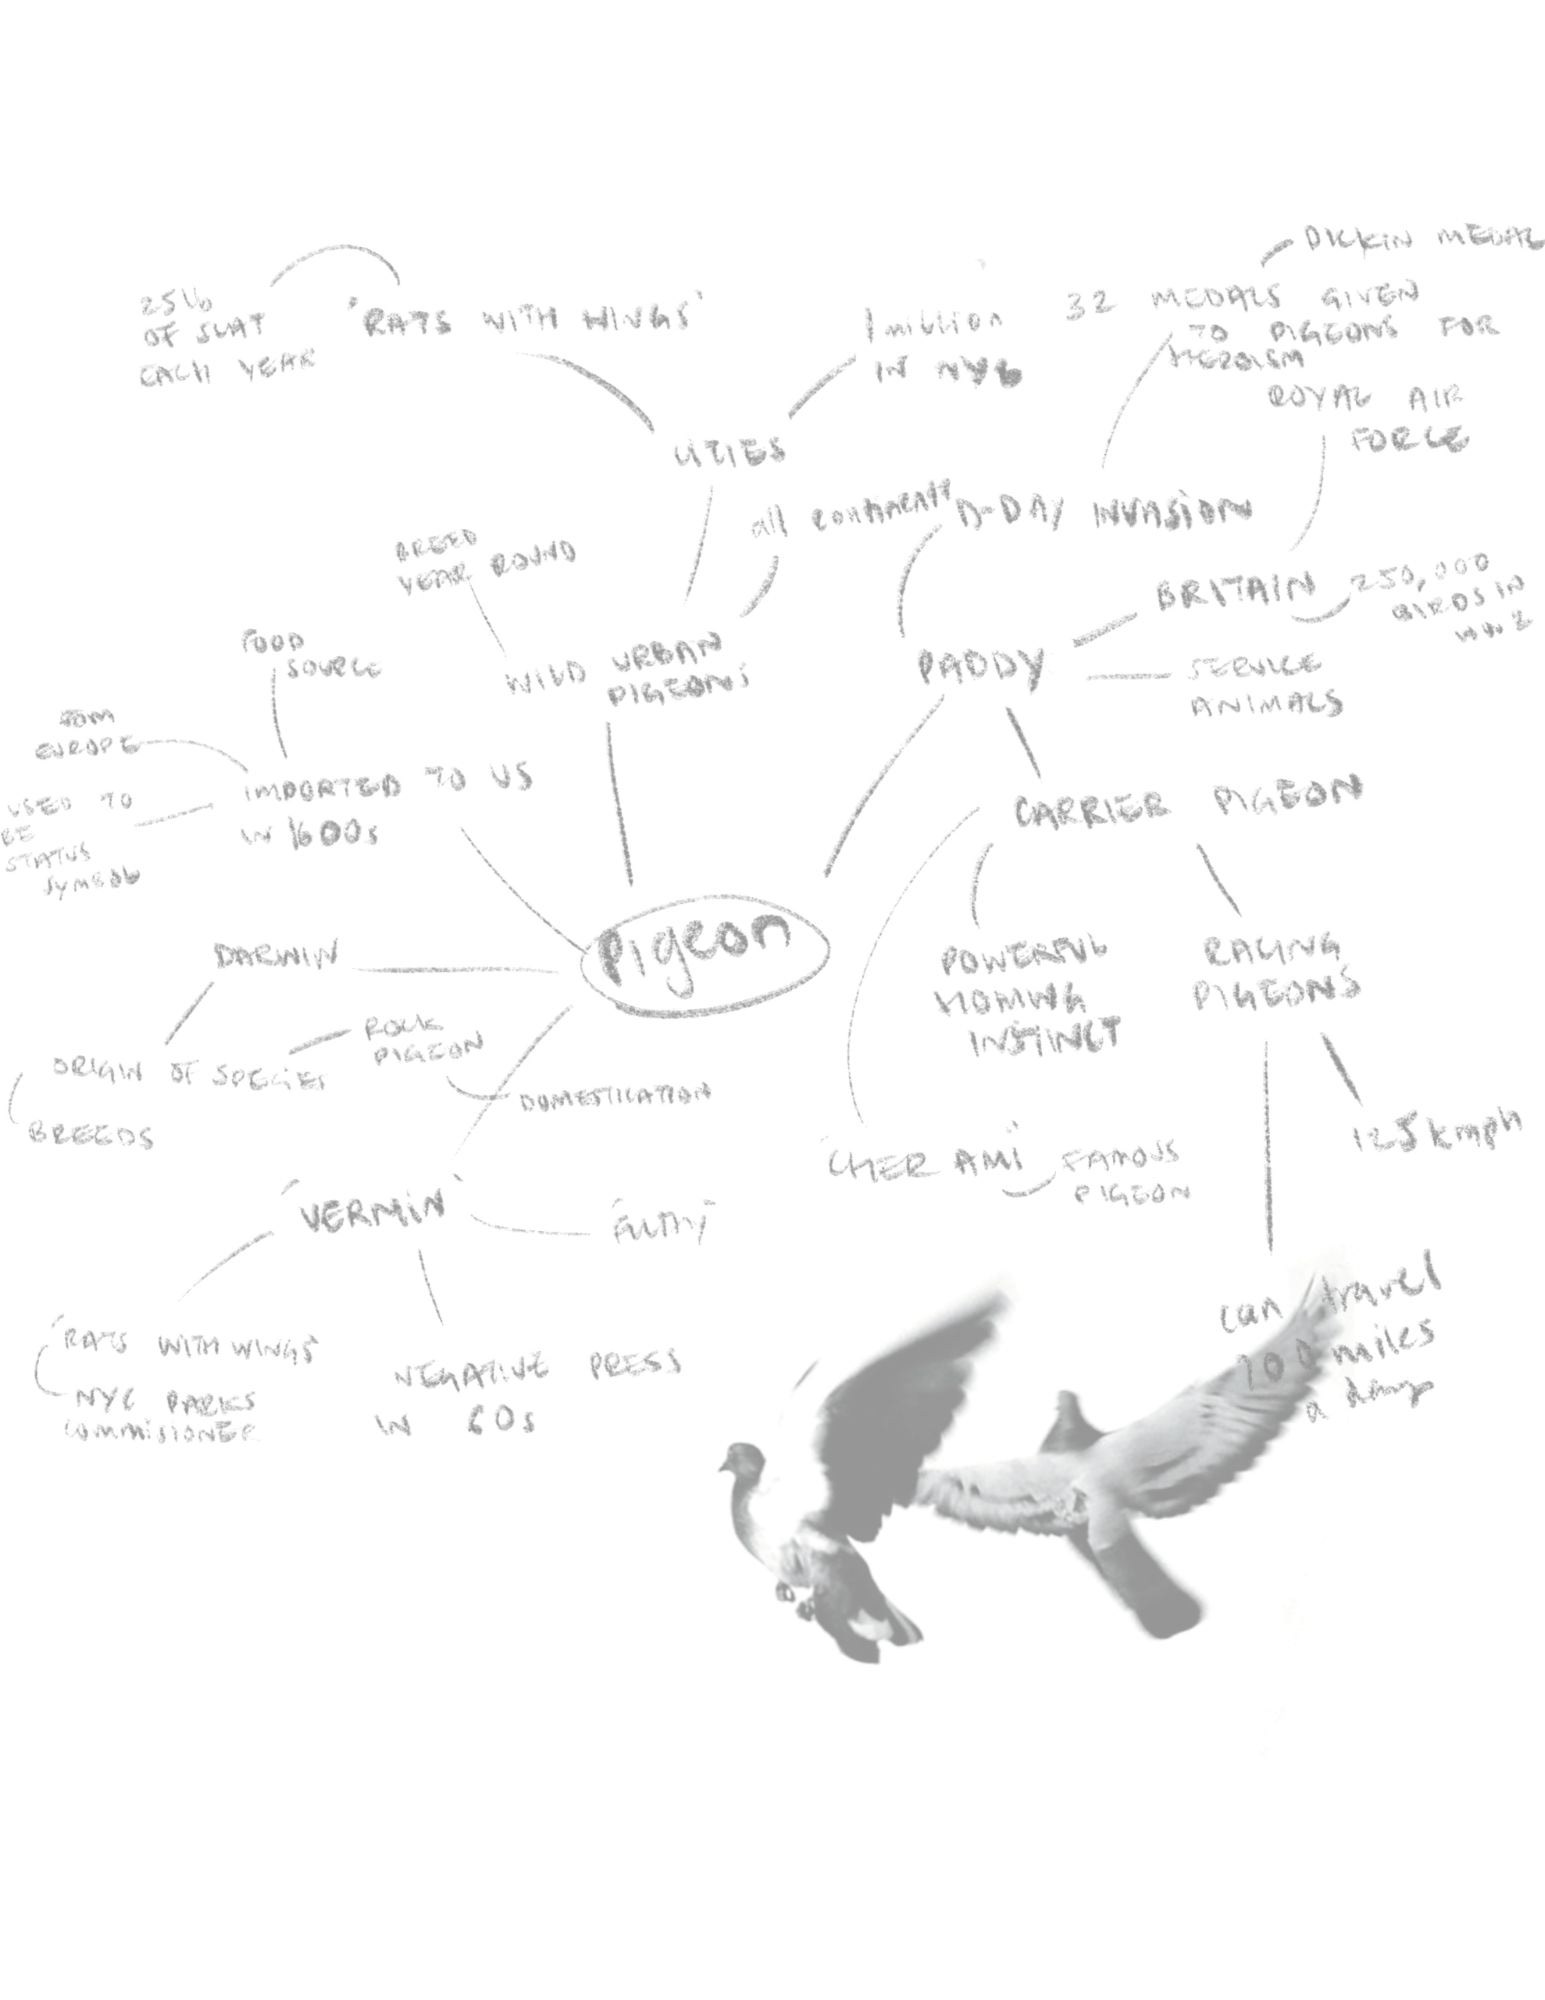 DICKIN MEDAL
25lb
OF SCAT
EACH YEAR
'RATS WITH WINGS'
1 million
IN NYC
32 MEDALS GIVEN
TO PIGEONS FOR
HEROISM
ROYAL AIR
FORCE
CITIES
all continents
D-DAY INVASION
BREED
YEAR ROUND
BRITAIN
250,000
BIRDS IN
WW2
FOOD
SOURCE
WILD URBAN
PIGEONS
PADDY
SERVICE
ANIMALS
EUROPE
IMPORTED TO US
IN 1600s
USED TO
BE
STATUS
SYMBOL
CARRIER PIGEON
Pigeon
DARWIN
POWERFUL
HOMING
INSTINCT
RACING
PIGEONS
ORIGIN OF SPECIES
ROCK
PIGEON
DOMESTICATION
BREEDS
125 kmph
'CHER AMI'
FAMOUS
PIGEON
'VERMIN'
'FILTHY'
can travel
700 miles
a day
'RATS WITH WINGS'
NYC PARKS
COMMISIONER
NEGATIVE PRESS
IN 60s